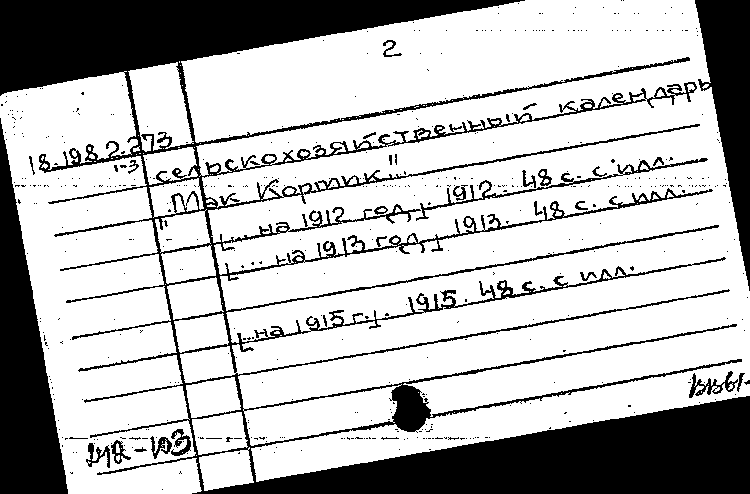 2
18.198.2.273
1-3
сельскохозяйственный календарь
"Мак Кормик"
[... на 1912 год]. 1912. 48 с. с илл.
[... на 1913 год]. 1913. 48 с. с илл.
[... на 1915 г.]. 1915. 48 с. с илл.
242-103